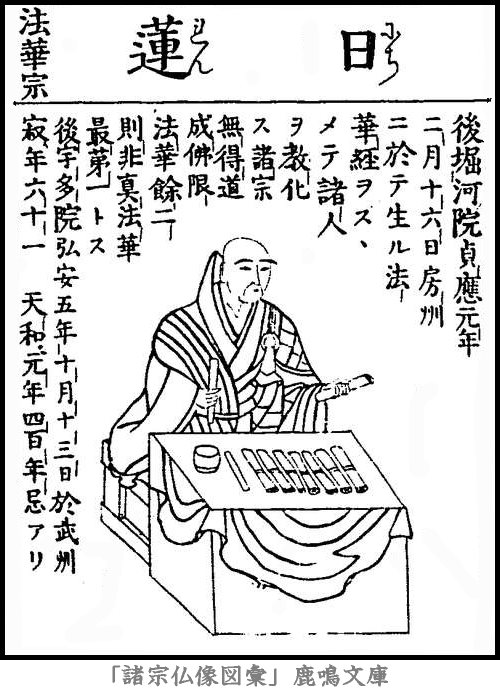 日蓮
にちれん
法華宗
後堀河院貞應元年
二月十六日房州
ニ於テ生ル法ー
華経ヲスヽ
メテ諸人
ヲ教化
ス諸宗
無得道
成佛限ー
法華餘ニー
則非真法華
最第一トス
後宇多院弘安五年十月十三日於武州
寂年六十一 天和元年四百年忌アリ
「諸宗仏像図彙」鹿鳴文庫